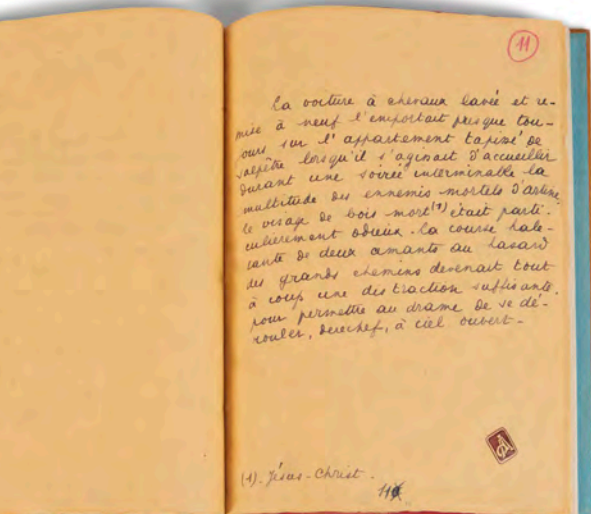 11
La voiture à chevaux lavée et re-
mise à neuf l'emportait presque tou-
jours sur l'appartement tapissé de
salpêtre lorsqu'il s'agissait d'accueillir
durant une soirée interminable la
multitude des ennemis mortels d'artine
le visage de bois mort (1) était parti-
culièrement odieux. La course hale-
tante de deux amants au hasard
des grands chemins devenait tout
à coup une distraction suffisante
pour permettre au drame de se dé-
rouler, derechef, à ciel ouvert.
(1). Jésus-Christ.
11